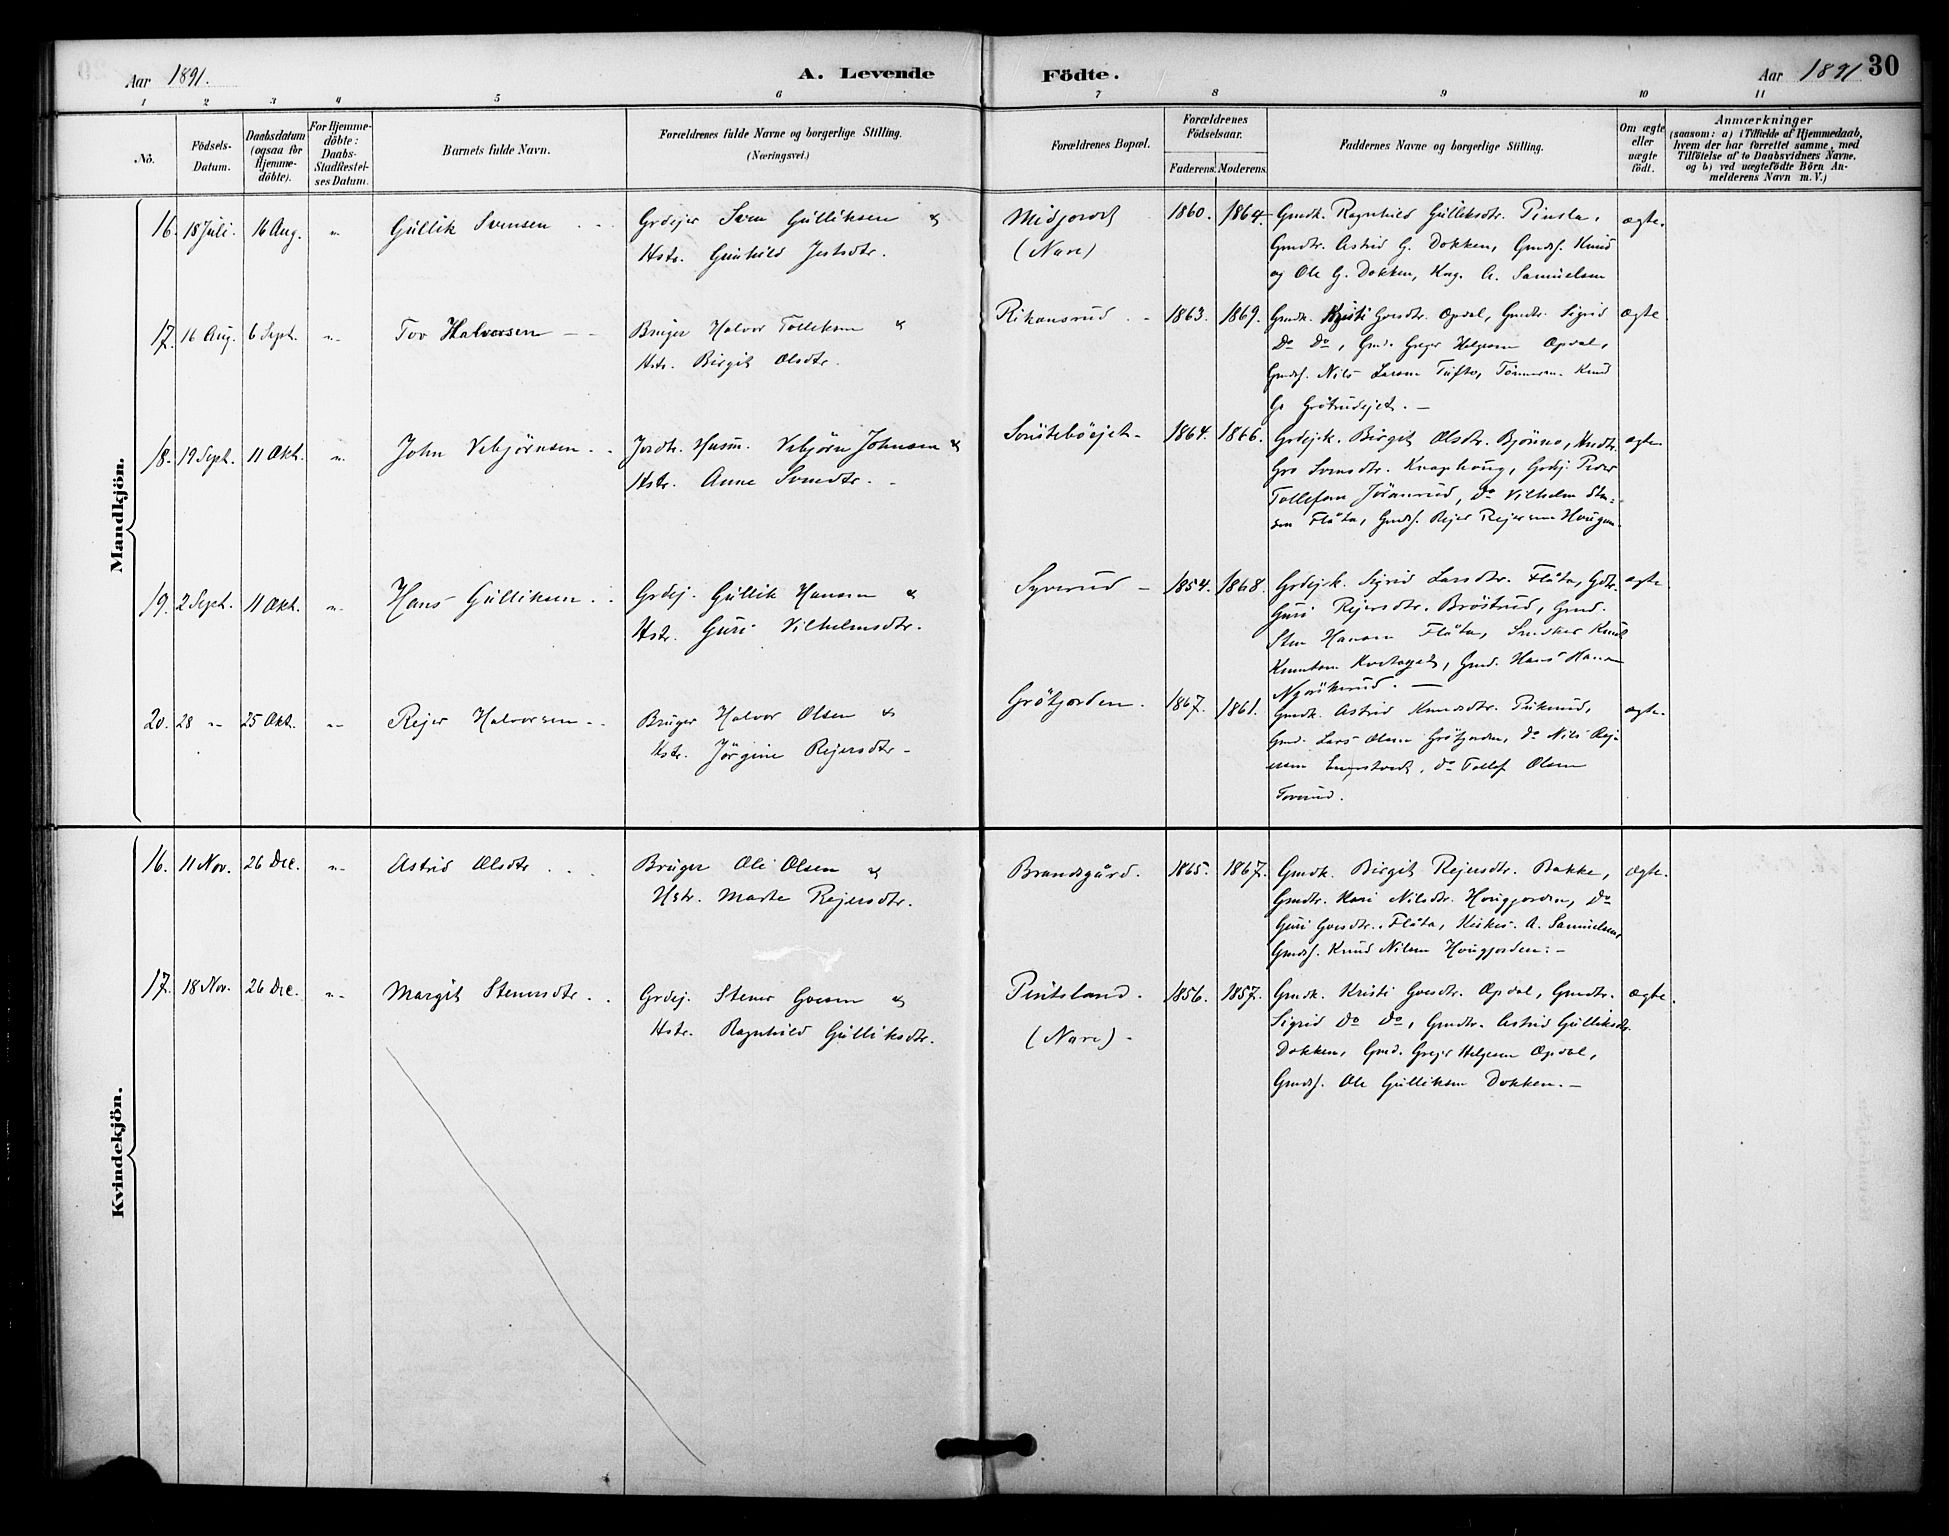 Aar 1891.
A. Levende
Födte.
Aar 1891
30
1
2
3
4
5
6
7
8
9
10
11
No.
Födsels-
Datum.
Daabsdatum
(ogsaa for
Hjemme-
döbte).
For Hjemme-
döbte:
Daabs-
Stadfæstel-
ses Datum.
Barnets fulde Navn.
Forældrenes fulde Navne og borgerlige Stilling.
(Næringsvei.)
Forældrenes Bopæl.
Forældrenes
Födselsaar.
Faderens.
Moderens.
Faddernes Navne og borgerlige Stilling.
Om ægte
eller
uægte
födt.
Anmærkninger
(saasom: a) i Tilfælde af Hjemmedaab,
hvem der har forrettet samme, med
Tilföielse af to Daabsvidners Navne,
og b) ved uægtefödte Börn An-
melderens Navn m. V.)
Mandkjön.
16. 18 Juli. 16 Aug. "- Gullik Svensen
Grdejer Sven Gulliksen &
Hstr. Gunhild Jostsdtr.
Midjordet
(Nare)
1860. 1864.
Gmdk. Ragnhild Gulliksdtr. Pinsla,
Gmdtr. Astrid G. Dokken, Gmds. Knud
og Ole G. Dokken, Kng. A. Samuelsen
ægte.
17. 16 Aug. 6 Sept. "- Tov Halvorsen
Bruger Halvor Tollefsen &
Hstr. Birgit Olsdtr.
Rikansrud
1863. 1869.
Gmdk. Kristi Goesdtr. Opdal, Gmdtr. Sigrid
Do Do, Gmd. Greger Helgesen Opdal,
Gmds. Nils Larsen Tufto, Tömmerm. Knud
G. Grötrudejet.
ægte
18. 19 Sept. 11 Okt. "- John Vebjørnsen
Jordbr. Husm. Vebjørn Johnsen &
Hstr. Anne Svendtr.
1864. 1866.
Grdejk. Birgit Olsdtr. Bjönne,
Gro Svensdtr. Knaphoug, Grdej. Peder
Tollefsen Jöranrud, Do Vilhelm Sten-
sen Flåta, Gmds. Rejer Rejersen Hougen
ægte
19. 2 Sept. 11 Okt. "- Hans Gulliksen
Grdej. Gullik Hansen &
Hstr. Guri Vilhelmsdtr.
Syverud
1854. 1868.
Grdejk. Sigrid Larsdtr. Flåta, Gdtr.
Guri Rejersdtr. Bröstrud, Gmd.
Sten Hansen Flåta, Snedker Knud
Knutsen, Gmd. Hans Hansen
ægte
20. 28 "- 25 Okt. "- Rejer Halvorsen
Bruger Halvor Olsen &
Hstr. Jörgine Rejersdtr.
Grötjorden.
1867. 1861.
Gmdk. Astrid Knudsdtr.
Gmd. Lars Olsen Grötjorden, Do Nils Rej-
ersen, Do Tollef Olsen
Toverud.
ægte.
Kvindekjön.
16. 11 Nov. 26 Dec. "- Astrid Olsdtr
Bruger Ole Olsen &
Hstr. Marte Rejersdtr.
Brandsgård.
1865. 1867.
Gmdk. Birgit Rejersdtr. Bakke,
Gmdtr. Kari Nilsdtr. Hougjorden, Do
Guri Goesdtr. Flåta, Kirkes. A. Samuelsen,
Gmds. Knud Nilsen Hougjorden.
ægte.
17. 18 Nov. 26 Dec. "- Margit Stenersdtr.
Grdej. Stener Goesen &
Hstr. Ragnhild Gulliksdtr.
(Nare)
1856. 1857.
Gmdk. Kristi Goesdtr. Opdal, Gmdtr.
Sigrid Do Do, Gmdtr. Astrid Gulliksdtr.
Dokken, Gmd. Greger Helgesen Opdal,
Gmds. Ole Gulliksen Dokken.
ægte.